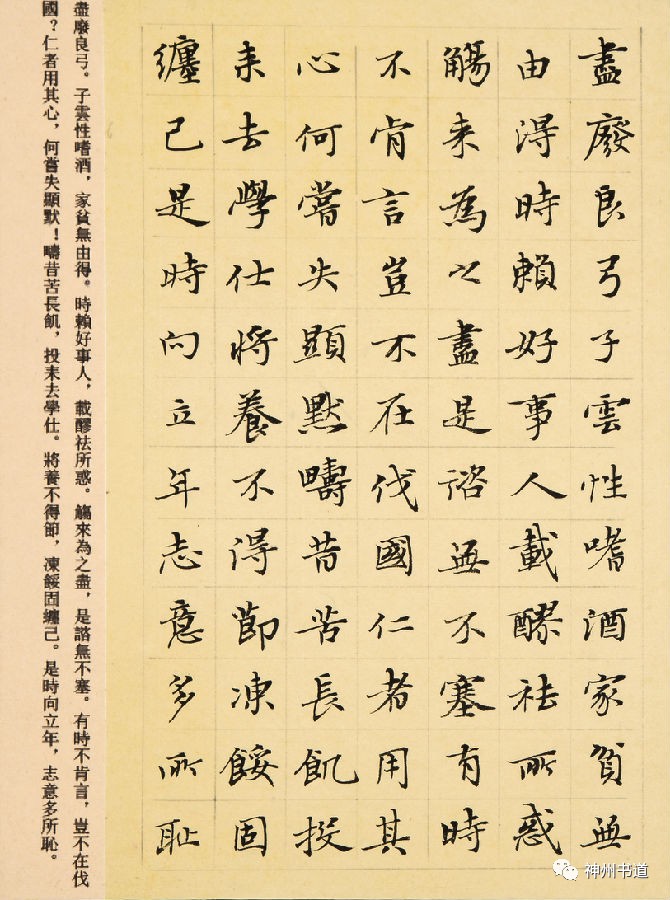 盡廢良弓子雲性嗜酒家貧無
由得時賴好事人載醪祛所惑
觴来為之盡是諮無不塞有時
不肯言豈不在伐國仁者用其
心何嘗失顯默疇昔苦長飢投
耒去學仕將養不得節凍餒固
纏己是時向立年志意多所恥
盡廢良弓。子雲性嗜酒，家貧無由得。時賴好事人，載醪祛所惑。觴來為之盡，是諮無不塞。有時不肯言，豈不在伐
國？仁者用其心，何嘗失顯默！疇昔苦長飢，投耒去學仕。將養不得節，凍餒固纏己。是時向立年，志意多所恥。
神州书道